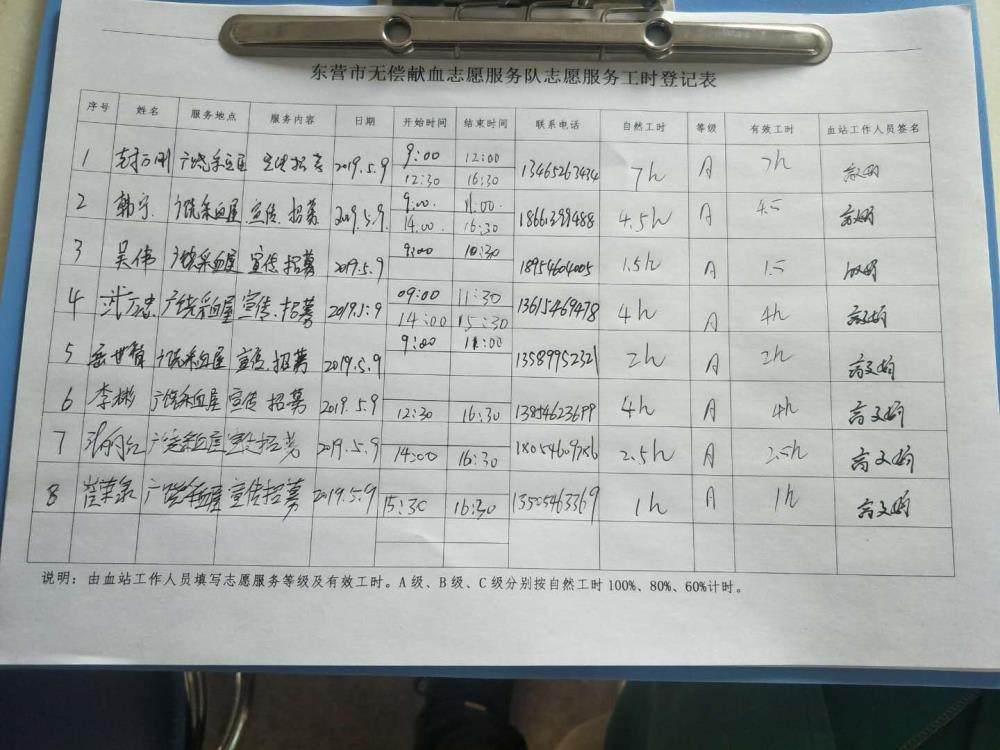 东营市无偿献血志愿服务队志愿服务工时登记表
序号 姓名 服务地点 服务内容 日期 开始时间 结束时间 联系电话 自然工时 等级 有效工时 血站工作人员签名
1 广饶采血屋 宣传招募 2019.5.9 9:00 12:00 13465263434 7h A 7h
12:30 16:30
2 韩宁 广饶采血屋 宣传.招募 2019.5.9. 9:00. 11:00. 18661399488 4.5h A 4.5 高文娟
14:00. 16:30
3 吴伟 广饶采血屋 宣传.招募 2019.5.9 9:00 10:30 18954604005 1.5h A 1.5
4 广饶采血屋 宣传.招募 2019.5.9 09:00 11:30 13615469478 4h A 4h 高文娟
14:00 15:30
5 广饶采血屋 宣传.招募 2019.5.9 9:00 11:00 13589952321 2h A 2h 高文娟
6 李彬 广饶采血屋 宣传 招募 2019.5.9 12:30 16:30 13854623699 4h A 4h 高文娟
7 广饶采血屋 宣传招募 2019.5.9 14:00 16:30 18054609786 2.5h A 2.5h 高文娟
8 广饶采血屋 宣传招募 2019.5.9 15:30 16:30 13505463369 1h A 1h 高文娟
说明：由血站工作人员填写志愿服务等级及有效工时。A级、B级、C级分别按自然工时100%、80%、60%计时。